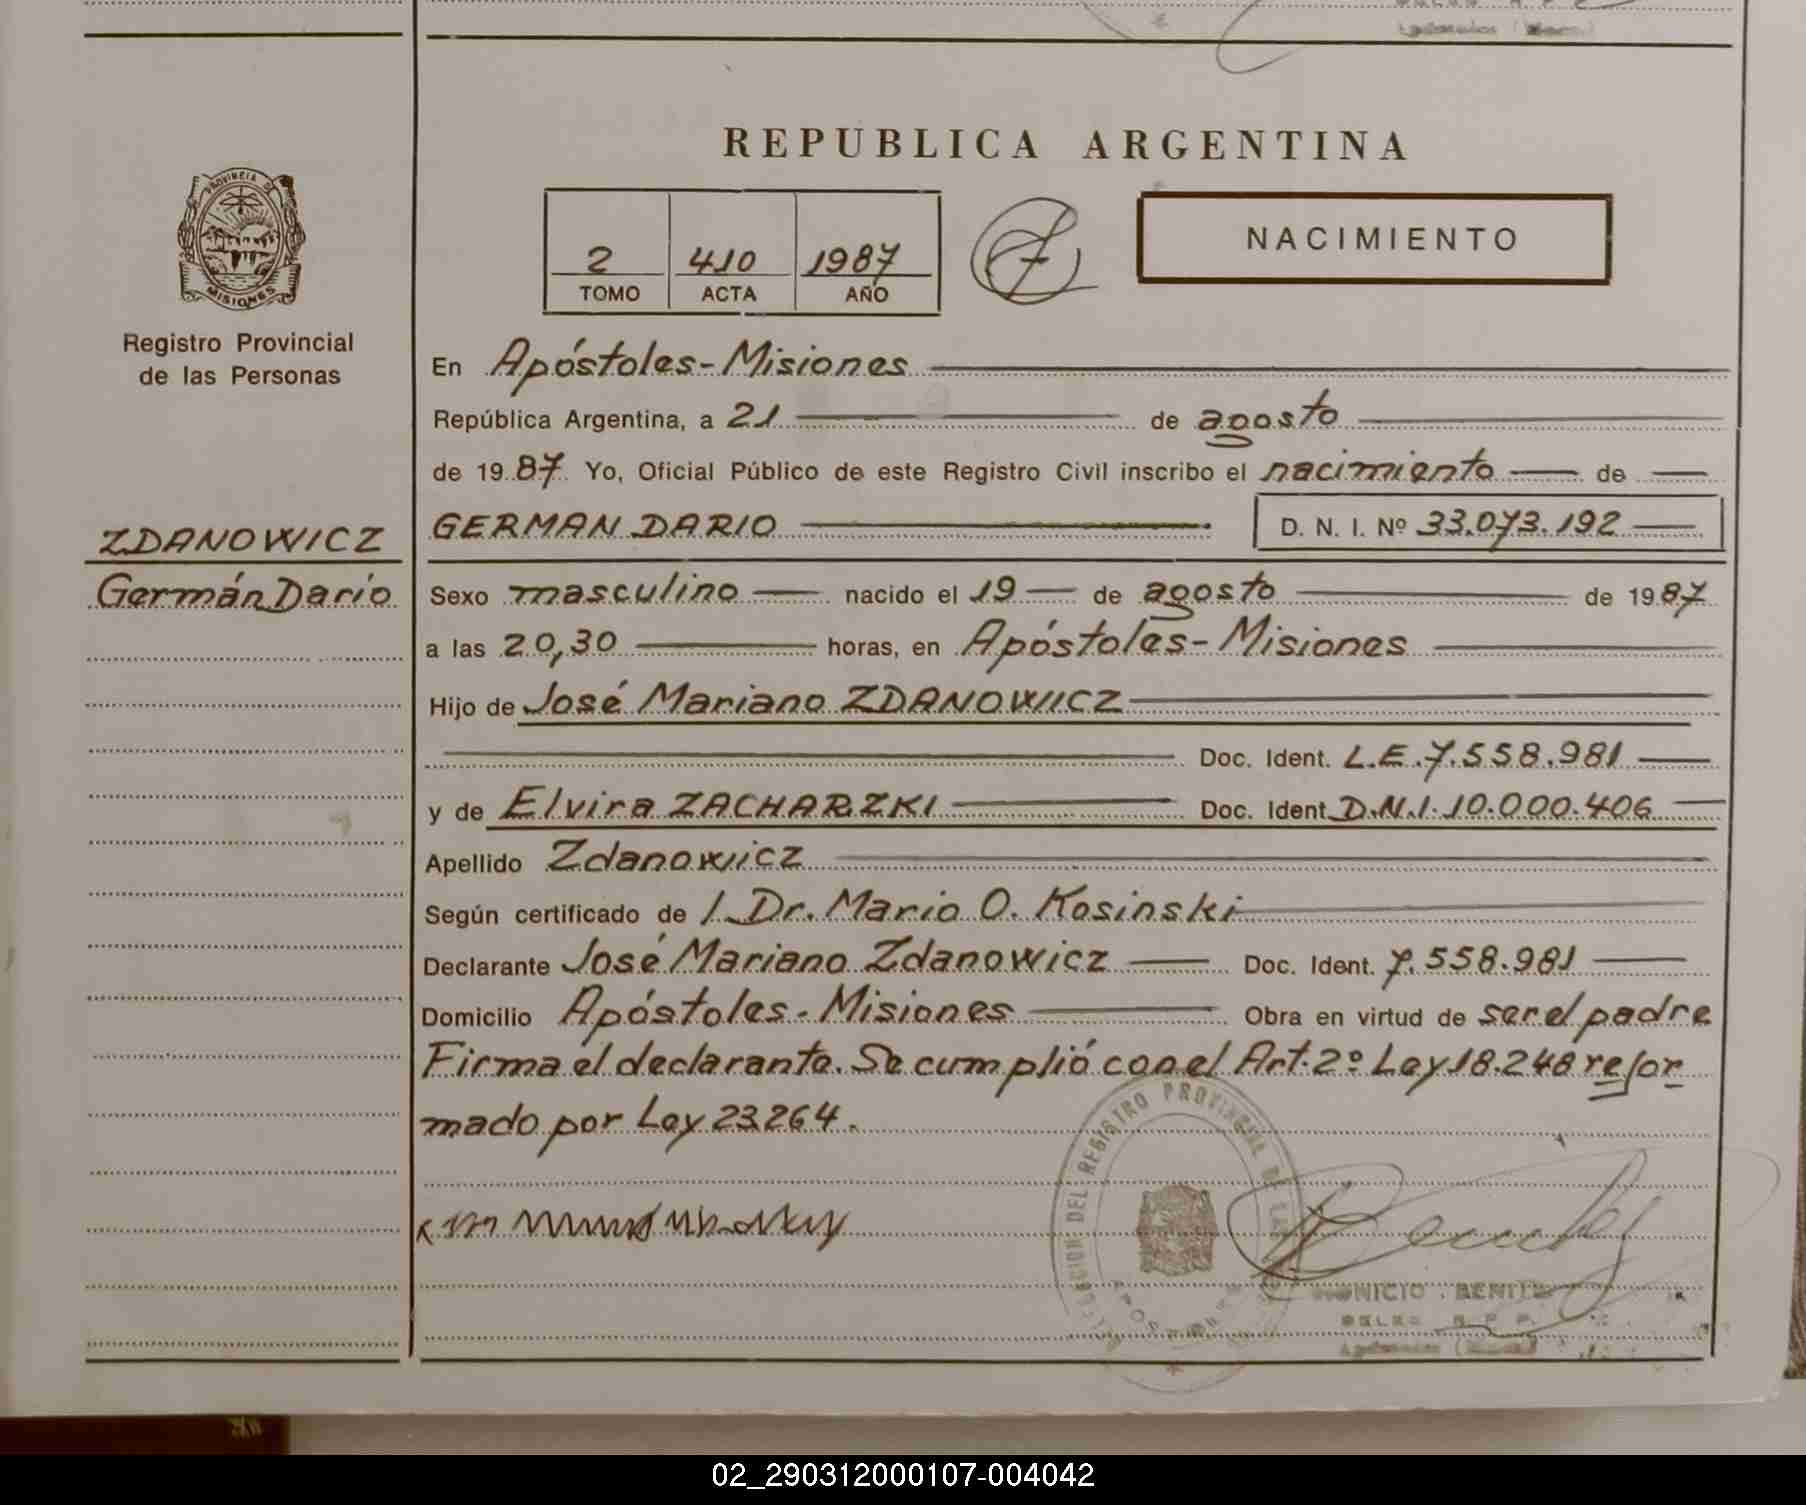 REPUBLICA ARGENTINA
PROVINCIA DE
MISIONES
Registro Provincial
de las Personas
2 410 1987
TOMO ACTA AÑO
NACIMIENTO
En Apóstoles-Misiones
República Argentina, a 21 de agosto
de 1987 Yo, Oficial Público de este Registro Civil inscribo el nacimiento de
ZDANOWICZ
Germán Darío
GERMAN DARIO D. N. I. Nº 33.073.192
Sexo masculino nacido el 19 de agosto de 1987
a las 20,30 horas, en Apóstoles-Misiones
Hijo de José Mariano ZDANOWICZ
Doc. Ident. L.E.7.558.981
y de Elvira ZACHARZKI Doc. Ident. D.N.I.10.000.406
Apellido Zdanowicz
Según certificado de / Dr. Mario O. Kosinski
Declarante José Mariano Zdanowicz Doc. Ident. 7.558.981
Domicilio Apóstoles-Misiones Obra en virtud de ser el padre
Firma el declarante. Se cumplió con el Art. 2º Ley 18.248 refor
mado por Ley 23264.
DEL REGISTRO PROVINCIAL DE LAS
BENITEZ
02_290312000107-004042